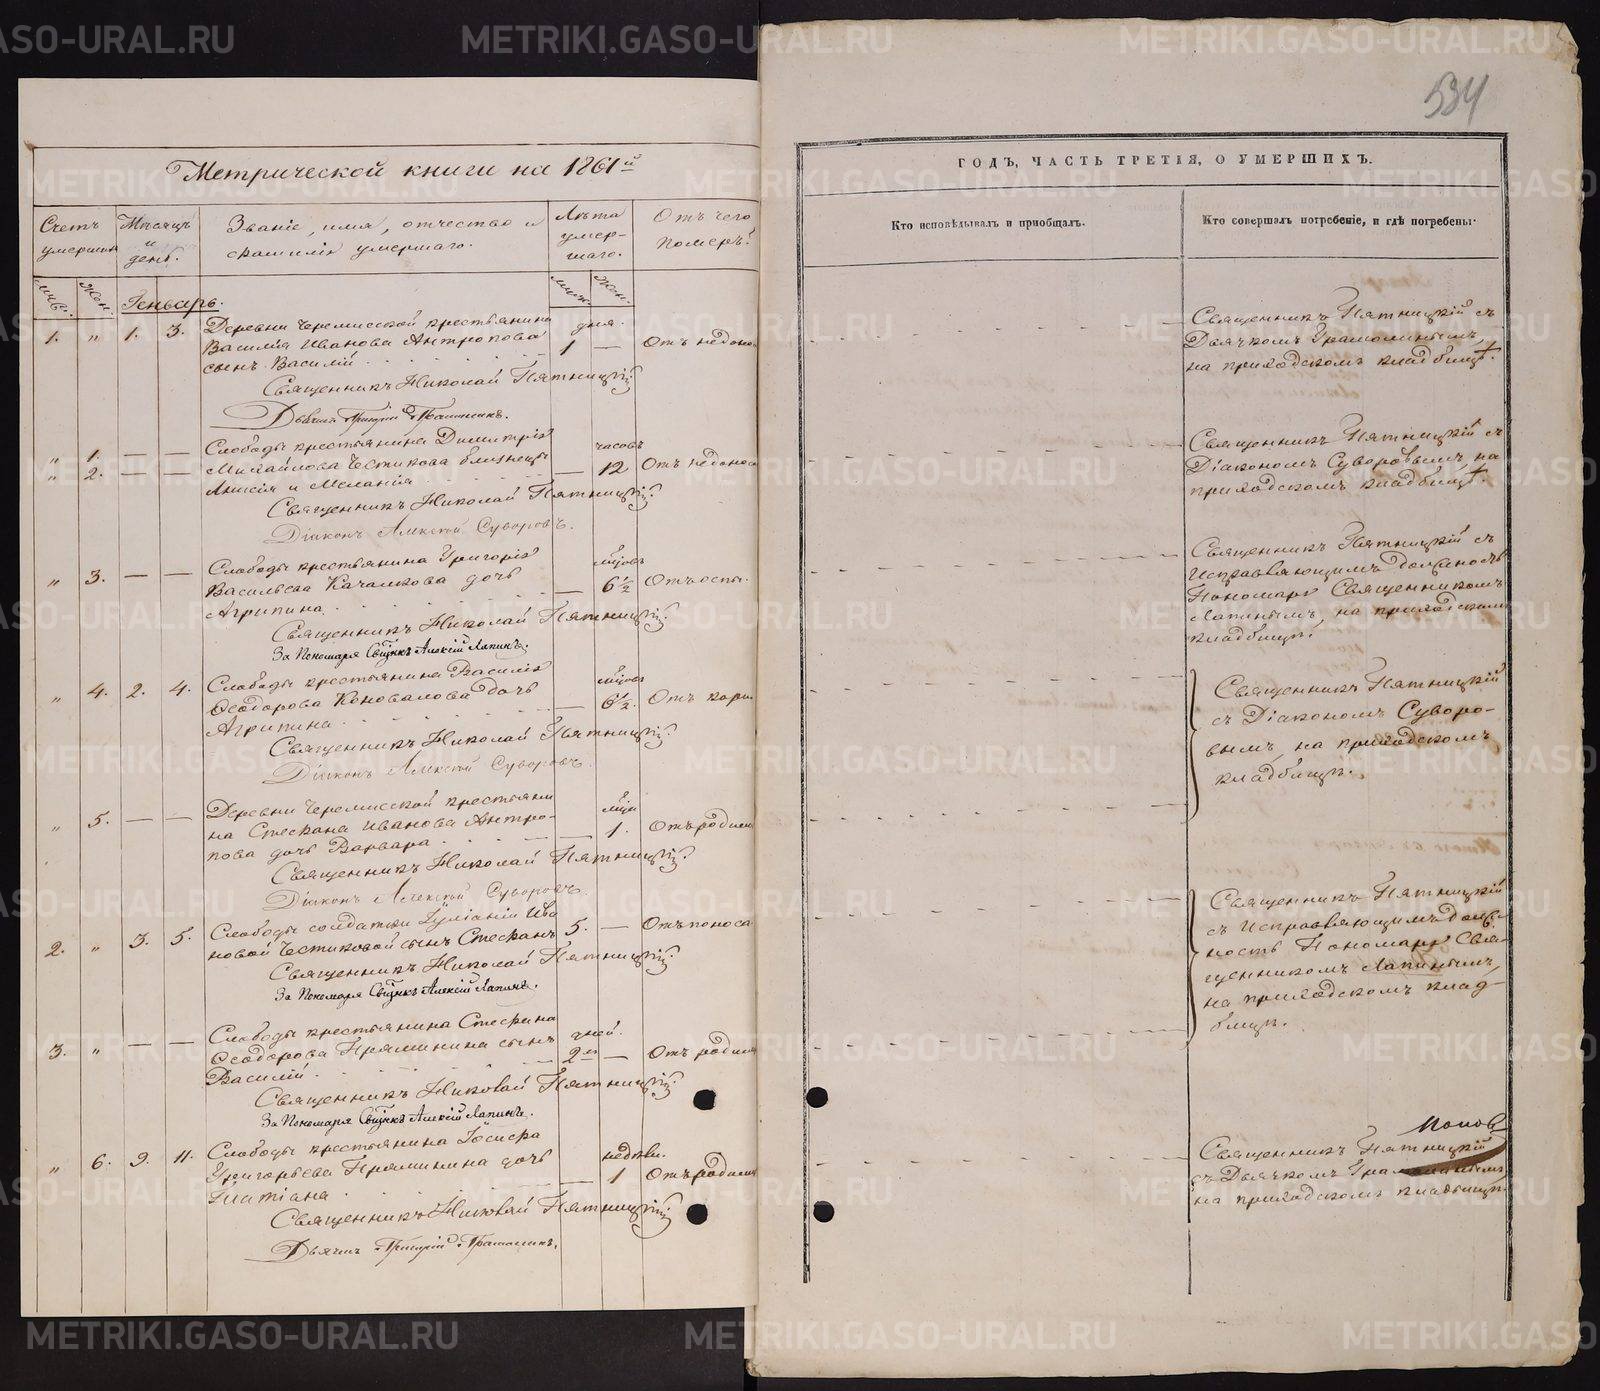 534
Метрической книги на 1861й
ГОДЪ, ЧАСТЬ ТРЕТІЯ, О УМЕРШИХЪ.
Счетъ умершихъ
Мѣсяцъ и день.
Званіе, имя, отчество и
фамилія умершаго.
Лѣта умер-
шаго.
Отъ чего
померъ.
Кто исповѣдывалъ и приобщалъ.
Кто совершалъ погребеніе, и гдѣ погребены.
муж. жен.
муж. жен.
Генварь.
1. " 1. 3. Деревни Черемисской крестьянина
дня.
Василія Иванова Антропова 1 — Отъ недоно
сынъ Василій
Священникъ Николай Пятницкій
Дьячекъ Григорій Грамолинъ.
Священникъ Пятницкій съ
Дьячкомъ Грамолинымъ,
на приходскомъ кладбищѣ.
Слободы крестьянина Димитрія
часовъ
" 1. — —
" 2. — — Михайлова Чистикова близнецы — 12 Отъ недонос
Анисія и Меланія
Священникъ Николай Пятницкій.
Діаконъ Алексѣй Суворовъ.
Священникъ Пятницкій съ
Діакономъ Суворовымъ, на
приходскомъ кладбищѣ.
Слободы крестьянина Григорія
мѣцовъ
" 3. — — Васильева Качалкова дочь — 6½ Отъ оспы.
Агрипина
Священникъ Николай Пятницкій.
За Пономаря Свщнкъ Алексій Лапинъ.
Священникъ Пятницкій съ
Исправляющимъ должность
Пономаря Священникомъ
Лапинымъ, на приходскомъ
кладбищѣ.
Слободы крестьянина Василія
мѣцовъ
" 4. 2. 4. Ѳеодорова Коновалова дочь — 6½. Отъ кори
Агрипина
Священникъ Николай Пятницкій.
Діаконъ Алексѣй Суворовъ.
Священникъ Пятницкій
съ Діакономъ Суворо-
вымъ, на приходскомъ
кладбищѣ.
Деревни Черемисской крестьяни
мѣця
" 5. — — на Стефана Иванова Антро- — 1. Отъ родим
пова дочь Варвара
Священникъ Николай Пятницкій.
Діаконъ Алексѣй Суворовъ.
Слободы солдатки Іуліаніи Ива
2. " 3. 5. новой Чистиковой сынъ Стефанъ 5. — Отъ поноса
Священникъ Николай Пятницкій.
За Пономаря Свщнкъ Алексій Лапинъ.
Священникъ Пятницкій
съ Исправляющимъ долж-
ность Пономаря Свя-
щенникомъ Лапинымъ,
на приходскомъ клад-
бищѣ.
Слободы крестьянина Стефана
дней.
3. " — — Ѳеодорова Пряминина сынъ 2 — Отъ родим
Василій
Священникъ Николай Пятницкій.
За Пономаря Свщнкъ Алексій Лапинъ.
Слободы крестьянина Іосифа
недѣли.
" 6. 9. 11. Григорьева Пряминина дочь — 1 Отъ родим
Татіана
Священникъ Николай Пятницкій
Дьячекъ Григорій Грамолинъ.
Поповъ
Священникъ Пятницкій
съ Дьячкомъ Грамолинымъ
на приходскомъ кладбищѣ
METRIKI.GASO-URAL.RU